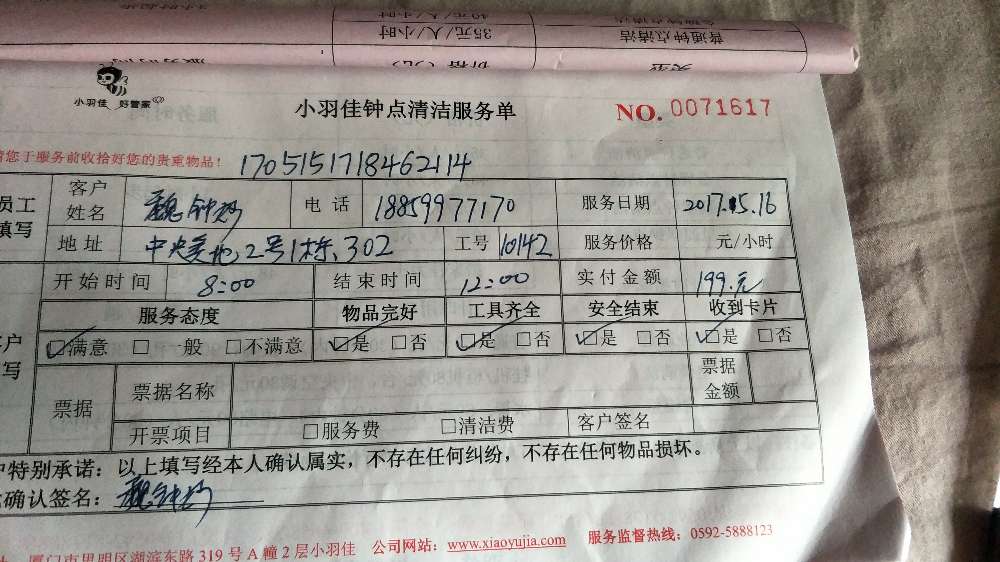 40元/人/小时
普通钟点清洁 35元/人/小时
类型 价格（元）
小羽佳 好管家
小羽佳钟点清洁服务单 NO. 0071617
请您于服务前收拾好您的贵重物品！ 1705151718462114
员工填写 客户姓名 魏钟 电话 18859977170 服务日期 2017.05.16
地址 中央美地2号1栋,302 工号 10142 服务价格 元/小时
开始时间 8:00 结束时间 12:00 实付金额 199.元
服务态度 物品完好 工具齐全 安全结束 收到卡片
☑满意 □一般 □不满意 ☑是 □否 ☑是 □否 ☑是 □否 ☑是 □否
票据 票据名称 票据金额
开票项目 □服务费 □清洁费 客户签名
户特别承诺：以上填写经本人确认属实，不存在任何纠纷，不存在任何物品损坏。
确认签名：魏钟
厦门市思明区湖滨东路319号A幢2层小羽佳 公司网站：www.xiaoyujia.com 服务监督热线：0592-5888123